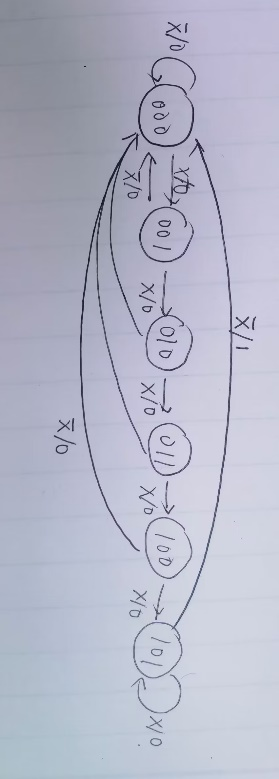 X̅/1
X̅/0
000
X/0
X̅/0
001
X/0
010
X/0
011
X/0
100
X/0
101
X/0
X̅/0